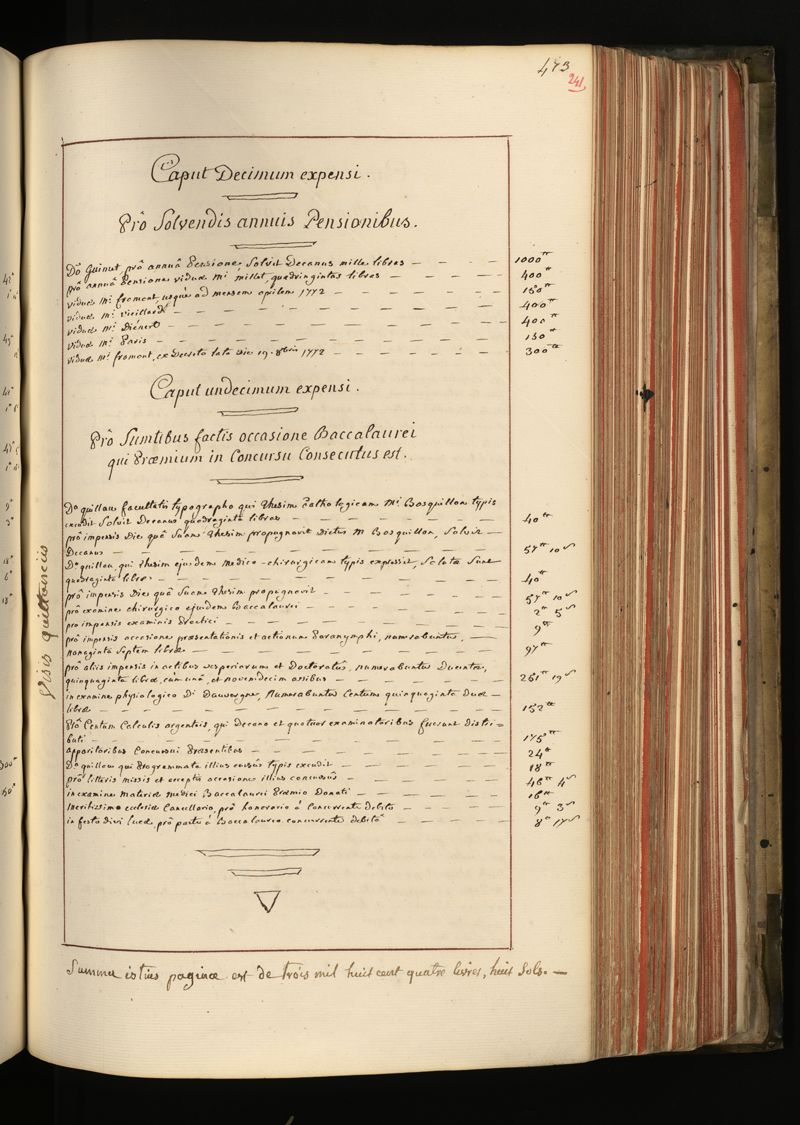 473
241
Caput Decimum expensi.
Prô Solvendis annuis Pensionibus.
Dô Guinut prô annuâ Pensione, Solvit Decanus mille libras — — — — 1000tt
prô annuâ Pensione viduæ Mi millet, quadringintas libras — — — — 400tt
viduæ Mi fromont, usque ad mensem aprilem 1772 — — — — 150tt
viduæ Mi vieillard — — — — 400tt
viduæ Mi Diénert — — — — 400tt
viduæ Mi Paris — — — — 150tt
viduæ Mi fromont, ex Decreto lato Die 19. 8bris 1772 — — — — 300tt
Caput undecimum expensi.
Prô Sumtibus factis occasione Baccalaurei
qui Præmium in Concursu Consecutus est.
Visis quittanciis
Dô quillau facultatis typographo qui Thesim Pathologicam Mi Bosquillon typis
excudit Solvit Decanus quadraginta libras — — — — 40tt
prô impensis Die quâ Suam Thesim propugnavit Dictus M. Bosquillon, Solvit —
Decanus — — — — 57tt 10s
Dô quillau, qui Thesim ejusdem Medico-chirurgicam typis expressit, Solutæ Sunt
quadraginta libræ — — — — 40tt
prô impensis Die quâ Suam Thesim propugnavit — — — — 57tt 10s
prô examine chirurgico ejusdem Baccalaurei — — — — 2tt 5s
pro impensis examinis Practici — — — — 9tt
prô impensis occasione præsentationis et actionum Paranymphi, numerabuntur, —
nonaginta Septem libræ — — — — 97tt
prô aliis impensis in actibus vesperiarum et Doctoratûs, numerabuntur Ducentæ,
quinquaginta libræ, cùm unâ, et novemdecim assibus — — — — 261tt 19s
in examine physiologico Di Dauvergne, Numerabuntur Centum quinquaginta Duæ —
libræ — — — — 152tt
Prô Centum Calculis argenteis, qui Decano et quatuor examinatoribus fuerunt Distri=
buti — — — — 175tt
apparitoribus Concursui Præsentibus — — — — 24tt
Dô quillau qui Programmata illius cursûs typis excudit — — — — 18tt
prô litteris missis et acceptis occasione illius concursûs — — — — 46tt 4s
in examine Materiæ Medicæ Baccalaurei Præmio Donati — — — — 16tt
ecclesiæ Cancellario, prô honorario à Concurrente debito — — — — 9tt 3s
in festo Divi lucæ, prô parte à Baccalaureo concurrente debitâ — — — — 8tt 17s
Summa istius paginæ est de trois mil huit cent quatre livres, huit Sols. —